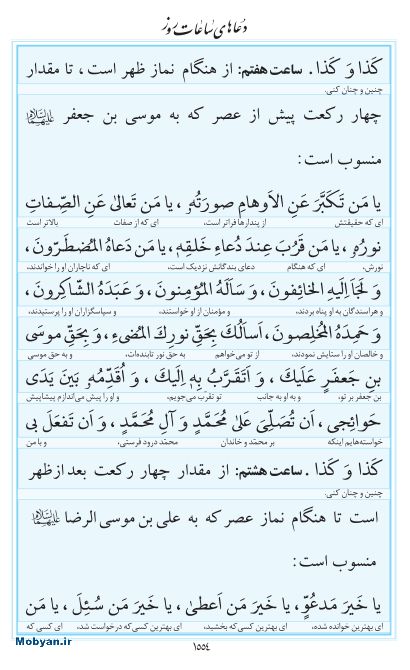 دعاهای ساعات روز
کَذا وَ کَذا. ساعت هفتم: از هنگام نماز ظهر است، تا مقدار
چنین و چنان کنی.
چهار رکعت پیش از عصر که به موسی بن جعفر علیهما السلام
منسوب است:
یا مَن تَکَبَّرَ عَنِ الأَوهامِ صورَتُهُ، یا مَن تَعالىٰ عَنِ الصِّفاتِ
ای که حقیقتش از پندارها فراتر است، ای که از صفات بالاتر است
نورُهُ، یا مَن قَرُبَ عِندَ دُعاءِ خَلقِهِ، یا مَن دَعاهُ المُضطَرّونَ،
نورش، ای که هنگام دعای بندگانش نزدیک است، ای که ناچاران او را خواندند،
وَ لَجَأَ اِلَیهِ الخائِفونَ، وَ سَأَلَهُ المُؤمِنونَ، وَ عَبَدَهُ الشّاکِرونَ،
و هراسندگان به او پناه بردند، و مؤمنان از او خواستند، و سپاسگزاران او را پرستیدند،
وَ حَمِدَهُ المُخلِصونَ، اَسأَلُكَ بِحَقِّ نورِكَ المُضیءِ، وَ بِحَقِّ موسَی
و خالصان او را ستایش نمودند، از تو می‌خواهم به حق نور تابنده‌ات، و به حق موسی
بنِ جَعفَرٍ عَلَیكَ، وَ اَتَقَرَّبُ بِهِ اِلَیكَ، وَ اُقَدِّمُهُ بَینَ یَدَی
بن جعفر بر تو، و به او به جانب تو تقرب می‌جویم، و او را پیش می‌اندازم پیشاپیش
حَوائِجی، اَن تُصَلِّیَ عَلىٰ مُحَمَّدٍ وَ آلِ مُحَمَّدٍ، وَ اَن تَفعَلَ بی
خواسته‌هایم اینکه بر محمّد و خاندان محمّد درود فرستی، و با من
کَذا وَ کَذا. ساعت هشتم: از مقدار چهار رکعت بعد از ظهر
چنین و چنان کنی.
است تا هنگام نماز عصر که به علی بن موسی الرضا علیهما السلام
منسوب است:
یا خَیرَ مَدعُوٍّ، یا خَیرَ مَن اَعطىٰ، یا خَیرَ مَن سُئِلَ، یا مَن
ای بهترین خوانده شده، ای بهترین کسی که بخشید، ای بهترین کسی که درخواست شد، ای کسی که
Mobyan.ir
۱۵۵۴